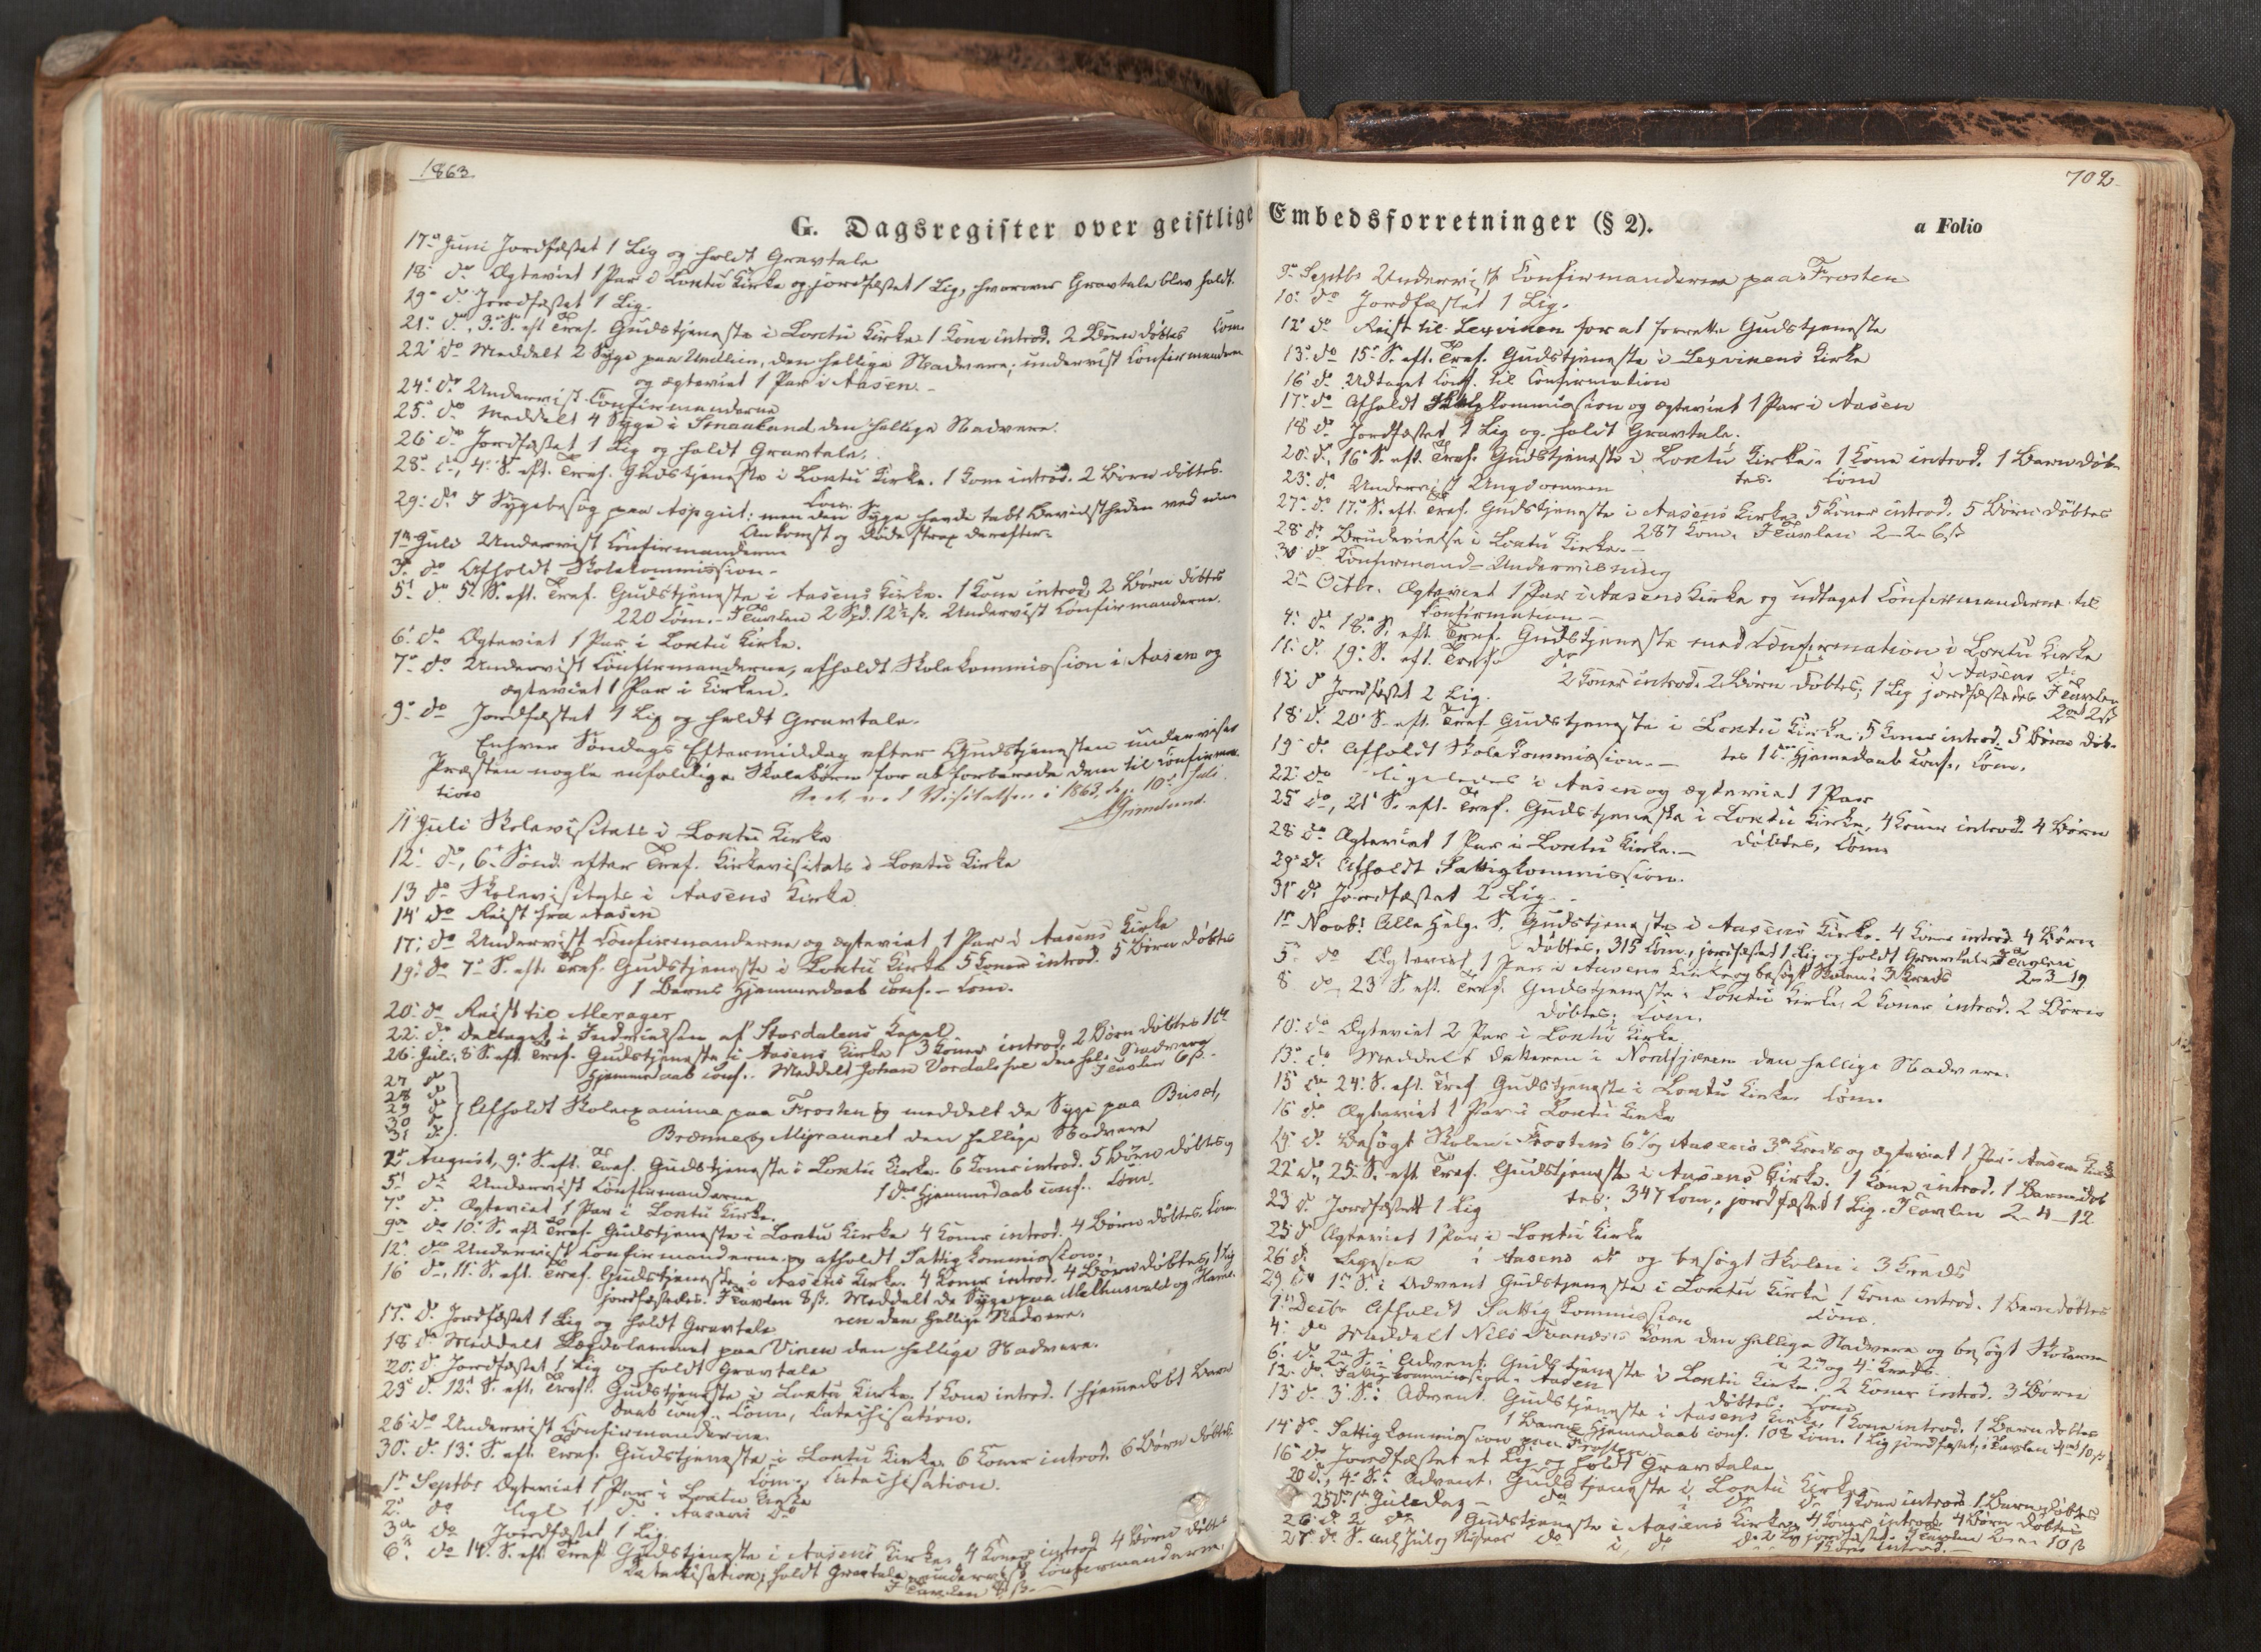 1863
G. Dagsregister over geistlige
17de Juni Jordfæstet 1 Lig og holdt Gravtale
18 do Ægteviet 1 Par i Loxtu Kirke og jordfæstet 1 Lig, hvorover Gravtale blev holdt.
19 do Jordfæstet 1 Lig.
21 do, 3. S. eft. Tref. Gudstjeneste i Loxtu Kirke 1 Kone introd. 2 Børn døbtes Com.
22 do Meddelt 2 Syge paa den hellige Nadvere; undervist Confirmanderne
og ægteviet 1 Par i Aasen.
24 do Undervist Confirmanderne
25 do Meddelt 4 Syge i Smaaland den hellige Nadvere.
26 do Jordfæstet 1 Lig og holdt Gravtale.
28 do, 4. S. eft. Tref. Gudstjeneste i Loxtu Kirke. 1 Kone introd. 2 Børn døbtes.
Com.
29 do I Sygebesøg paa men den Syge havde tabt Bevidstheden ved min
Ankomst og døde strax derefter.
1ste Juli Undervist Confirmanderne
3 do Afholdt Skolekommission.
5 do 5. S. eft. Tref. Gudstjeneste i Aasens Kirke. 1 Kone introd. 2 Børn døbtes
220 Com. I Tavlen 2 Spd. 12½ ß. Undervist Confirmanderne.
6 do Ægteviet 1 Par i Loxtu Kirke.
7 do Undervist Confirmanderne, afholdt Skolekommission i Aasen og
ægteviet 1 Par i Kirken.
9 do Jordfæstet 1 Lig og holdt Gravtale.
Enhver Søndags Eftermiddag efter Gudstjenesten underviser
Præsten nogle enfoldige Skolebørn for at forberede dem til Confirma-
tion
ved Visitatsen i 1863, d. 10 Juli.
AGrimelund.
11 Juli Skolevisitats i Loxtu Kirke
12 do, 6. Sønd. efter Tref. Kirkevisitats i Loxtu Kirke
13 do Skolevisitats i Aasens Kirke
14 do Reist fra Aasen
17 do Undervist Confirmanderne og ægteviet 1 Par i Aasens Kirke
19 do 7. S. eft. Tref. Gudstjeneste i Loxtu Kirke 5 Koner introd. 5 Børn døbtes
1 Barns Hjemmedaab conf. Com.
20 do Reist til Merager
22 do Deltaget i Indvielsen af Stordalens Kapel
26 Juli, 8 S. eft. Tref. Gudstjeneste i Aasens Kirke 3 Koner introd. 2 Børn døbtes 1
Hjemmedaab conf. Meddelt Johan den hel. Nadvere
I Tavlen 6 ß.
27 do
28 do
29 do Afholdt Skoleexamina paa Frosten og meddelt de Syge paa
30 do
31 do
den hellige Nadvere
2 August, 9. S. eft. Tref. Gudstjeneste i Loxtu Kirke. 6 Koner introd. 5 Børn døbtes og
1 do Hjemmedaab conf. Com.
5 do Undervist Confirmanderne
7 do Ægteviet 1 Par i Loxtu Kirke.
9 do 10. S. eft. Tref. Gudstjeneste i Loxtu Kirke 4 Koner introd. 4 Børn døbtes. Com.
12 do Undervist Confirmanderne og afholdt Fattigkommission.
16 do, 11. S. eft. Tref. Gudstjeneste i Aasens Kirke. 4 Koner introd. 4 Børn døbtes, 1 Lig
jordfæstedes. I Tavlen 8 ß. Meddelt de Syge paa og
den hellige Nadvere.
17 do Jordfæstet 1 Lig og holdt Gravtale
18 do Meddelt Lægdslemmet paa Vinen den hellige Nadvere.
20 do Jordfæstet 1 Lig og holdt Gravtale
23 do 12. S. eft. Tref. Gudstjeneste i Loxtu Kirke. 1 Kone introd. 1 hjemmedøbt Barn
daab conf. Com., Catechisation.
26 do Undervist Confirmanderne
30 do 13. S. eft. Tref. Gudstjeneste i Loxtu Kirke. 6 Koner introd. 6 Børn døbtes.
Com., Catechisation.
1ste Septbr Ægteviet 1 Par i Loxtu Kirke
2 do Ligl. 1 do i Aasens do
3 do Jordfæstet 1 Lig.
6 do 14. S. eft. Tref. Gudstjeneste i Aasens Kirke, 4 Koner introd. 4 Børn døbtes
Catechisation, holdt Gravtale, undervist Confirmanderne.
I Tavlen ß.
702
Embedsforretninger (§ 2).
a Folio
9 Septbr Undervist Confirmanderne paa Frosten
10 do Jordfæstet 1 Lig.
12 do Reist til Lexviken for at forrette Gudstjeneste
13 do 15. S. eft. Tref. Gudstjeneste i Lexvikens Kirke
16 do Udtaget Conf. til Confirmation
17 do Afholdt Skolekommission og ægteviet 1 Par i Aasen
18 do Jordfæstet 1 Lig og holdt Gravtale.
20 do, 16 S. eft. Tref. Gudstjeneste i Loxtu Kirke. 1 Kone introd. 1 Barn døb-
tes. Com
23 do Undervist Ungdommen
27 do 17. S. eft. Tref. Gudstjeneste i Aasens Kirke, 5 Koner introd. 5 Børn døbtes
287 Com. I Tavlen 2-2-6 ß
28 do Brudevielse i Loxtu Kirke.
30 do Confirmand-Undervisning
2 Octbr. Ægteviet 1 Par i Aasens Kirke og udtaget Confirmanderne til
Confirmation
4 do 18. S. eft. Tref. Gudstjeneste med Confirmation i Loxtu Kirke
11 do 19. S. eft. Tref. do i Aasens do
2 Koner introd. 2 Børn døbtes; 1 Lig jordfæstedes I Tavlen
2 ort 2 ß
12 do Jordfæstet 2 Lig.
18 do 20 S. eft. Tref Gudstjeneste i Loxtu Kirke. 5 Koner introd. 5 Børn døb-
tes 1 Hjemmedaab conf., Com.
19 do Afholdt Skolekommission.
22 do Ligeledes i Aasen og ægteviet 1 Par
25 do, 21 S. eft. Tref. Gudstjeneste i Loxtu Kirke, 4 Koner introd. 4 Børn
døbtes, Com.
28 do Ægteviet 1 Par i Loxtu Kirke.
29 do Afholdt Fattigkommission.
31 do Jordfæstet 2 Lig.
1ste Novbr Alle Helg. S. Gudstjeneste i Aasens Kirke. 4 Koner introd. 4 Børn
døbtes, 315 Com., jordfæstet 1 Lig og holdt Gravtale. I Tavlen
2-3-19
5 do Ægteviet 1 Par i Aasens Kirke og besøgt Skolen i 3 Kreds
8 do, 23 S. eft. Tref. Gudstjeneste i Loxtu Kirke, 2 Koner introd. 2 Børn
døbtes. Com.
10 do Ægteviet 2 Par i Loxtu Kirke
13 do Meddelt i den hellige Nadvere.
15 do 24. S. eft. Tref Gudstjeneste i Loxtu Kirke. Com.
16 do Ægteviet 1 Par i Loxtu Kirke
19 do Besøgt Skolen i Frostens 6 og Aasens 3 Kreds og ægteviet 1 Par i Aasens Kirke
22 do, 25. S. eft. Tref. Gudstjeneste i Aasens Kirke. 1 Kone introd. 1 Barn døb
tes. 347 Com., jordfæstet 1 Lig. I Tavlen 2-4-12
23 do Jordfæstet 1 Lig
25 do Ægteviet 1 Par i Loxtu Kirke
26 do Ligesaa i Aasens do og besøgt Skolen i 3 Kreds
29 do 1. S. i Advent Gudstjeneste i Loxtu Kirke 1 Kone introd. 1 Barn døbtes
Com.
1ste Decbr Afholdt Fattigkommission
4 do Meddelt Nils Kone den hellige Nadvere og besøgt Skolerne
i 2 og 4 Kreds.
6 do 2. S. i Advent. Gudstjeneste i Loxtu Kirke. 2 Koner introd. 3 Børn
døbtes. Com
12 do Fattigkommission i Aasen
13 do 3. S. i Advent. Gudstjeneste i Aasens Kirke, 1 Kone introd. 1 Barn døbtes
1 Barns Hjemmedaab conf. 108 Com. 1 Lig jordfæstet, i Tavlen 10 ß
14 do Fattigkommission paa Frosten.
16 do Jordfæstet et Lig og holdt Gravtale
20 do, 4. S. i Advent. Gudstjeneste i Loxtu Kirke
25 do 1ste Juledag do i do do 1 Kone introd. 1 Barn døbtes
26 do 2 do Gudstjeneste i Aasens Kirke, 4 Koner introd. 4 Børn døbtes
2 Lig jordfæstet. I Tavlen 10 ß
27 do S. mell. Jul og Nytaar do i do do 1 Kone introd.